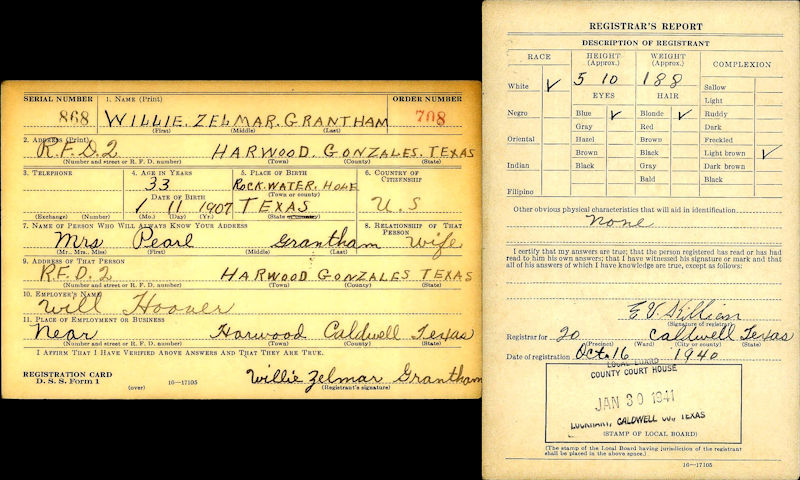 SERIAL NUMBER 1. NAME (Print) ORDER NUMBER
868 WILLIE. ZELMAR. GRANTHAM 708
(First) (Middle) (Last)
2. ADDRESS (Print)
R.F.D.2 HARWOOD. GONZALES. TEXAS
(Number and street or R. F. D. number) (Town) (County) (State)
3. TELEPHONE 4. AGE IN YEARS 5. PLACE OF BIRTH 6. COUNTRY OF CITIZENSHIP
33 ROCK.WATER.HOLE
(Town or county)
DATE OF BIRTH
1 11 1907 TEXAS U.S
(Exchange) (Number) (Mo.) (Day) (Yr.) (State or country)
7. NAME OF PERSON WHO WILL ALWAYS KNOW YOUR ADDRESS 8. RELATIONSHIP OF THAT PERSON
Mrs Pearl Grantham Wife
(Mr. Mrs. Miss) (First) (Middle) (Last)
9. ADDRESS OF THAT PERSON
R.F.D.2 HARWOOD GONZALES TEXAS
(Number and street or R. F. D. number) (Town) (County) (State)
10. EMPLOYER'S NAME
Will Hoover
11. PLACE OF EMPLOYMENT OR BUSINESS
Near Harwood Caldwell Texas
(Number and street or R. F. D. number) (Town) (County) (State)
I AFFIRM THAT I HAVE VERIFIED ABOVE ANSWERS AND THAT THEY ARE TRUE.
REGISTRATION CARD
D. S. S. Form 1 (over) 16—17105
Willie Zelmar Grantham
(Registrant's signature)
REGISTRAR'S REPORT
DESCRIPTION OF REGISTRANT
RACE HEIGHT (Approx.) WEIGHT (Approx.) COMPLEXION
White ✓ 5 10 188 Sallow
EYES HAIR Light
Negro Blue ✓ Blonde ✓ Ruddy
Gray Red Dark
Oriental Hazel Brown Freckled
Brown Black Light brown ✓
Indian Black Gray Dark brown
Bald Black
Filipino
Other obvious physical characteristics that will aid in identification
None
I certify that my answers are true; that the person registered has read or has had
read to him his own answers; that I have witnessed his signature or mark and that
all of his answers of which I have knowledge are true, except as follows:
E.V. Killian
(Signature of registrar)
Registrar for 20 Caldwell Texas
(Precinct) (Ward) (City or county) (State)
Date of registration Oct. 16 1940
LOCAL BOARD
COUNTY COURT HOUSE
JAN 30 1941
LOCKHART, CALDWELL CO., TEXAS
(STAMP OF LOCAL BOARD)
(The stamp of the Local Board having jurisdiction of the registrant
shall be placed in the above space.)
16—17105